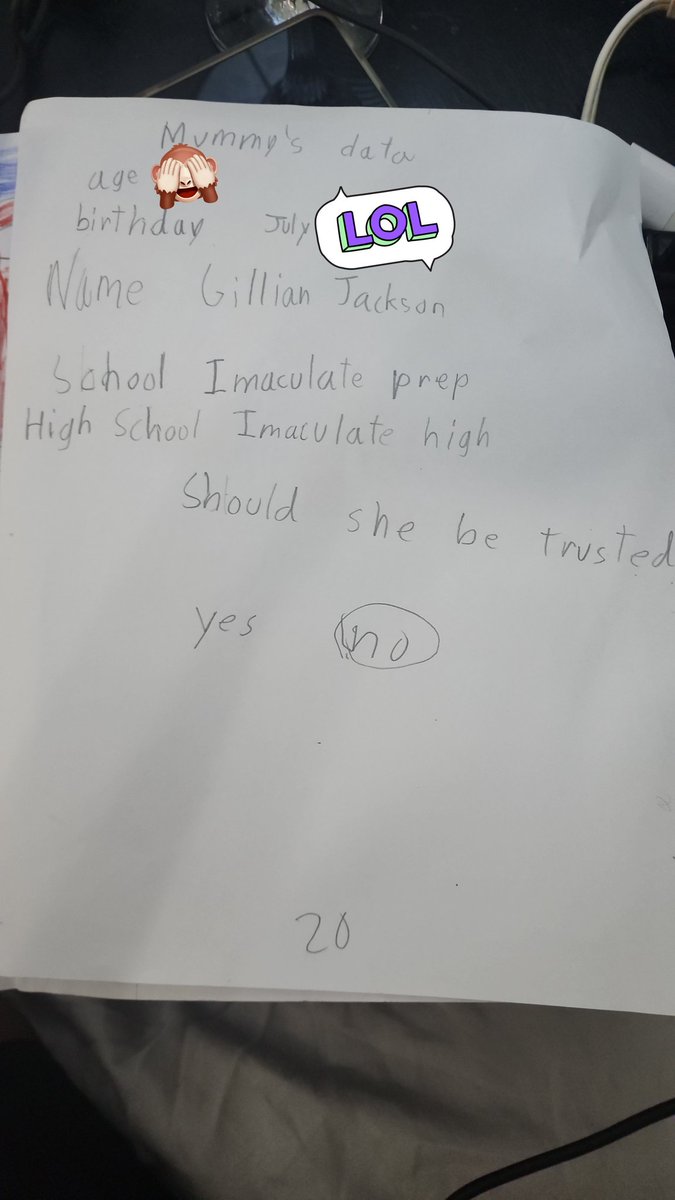 Mummy's data
age
birthday July LOL
Name Gillian Jackson
School Imaculate prep
High School Imaculate high
Should she be trusted
yes no
20